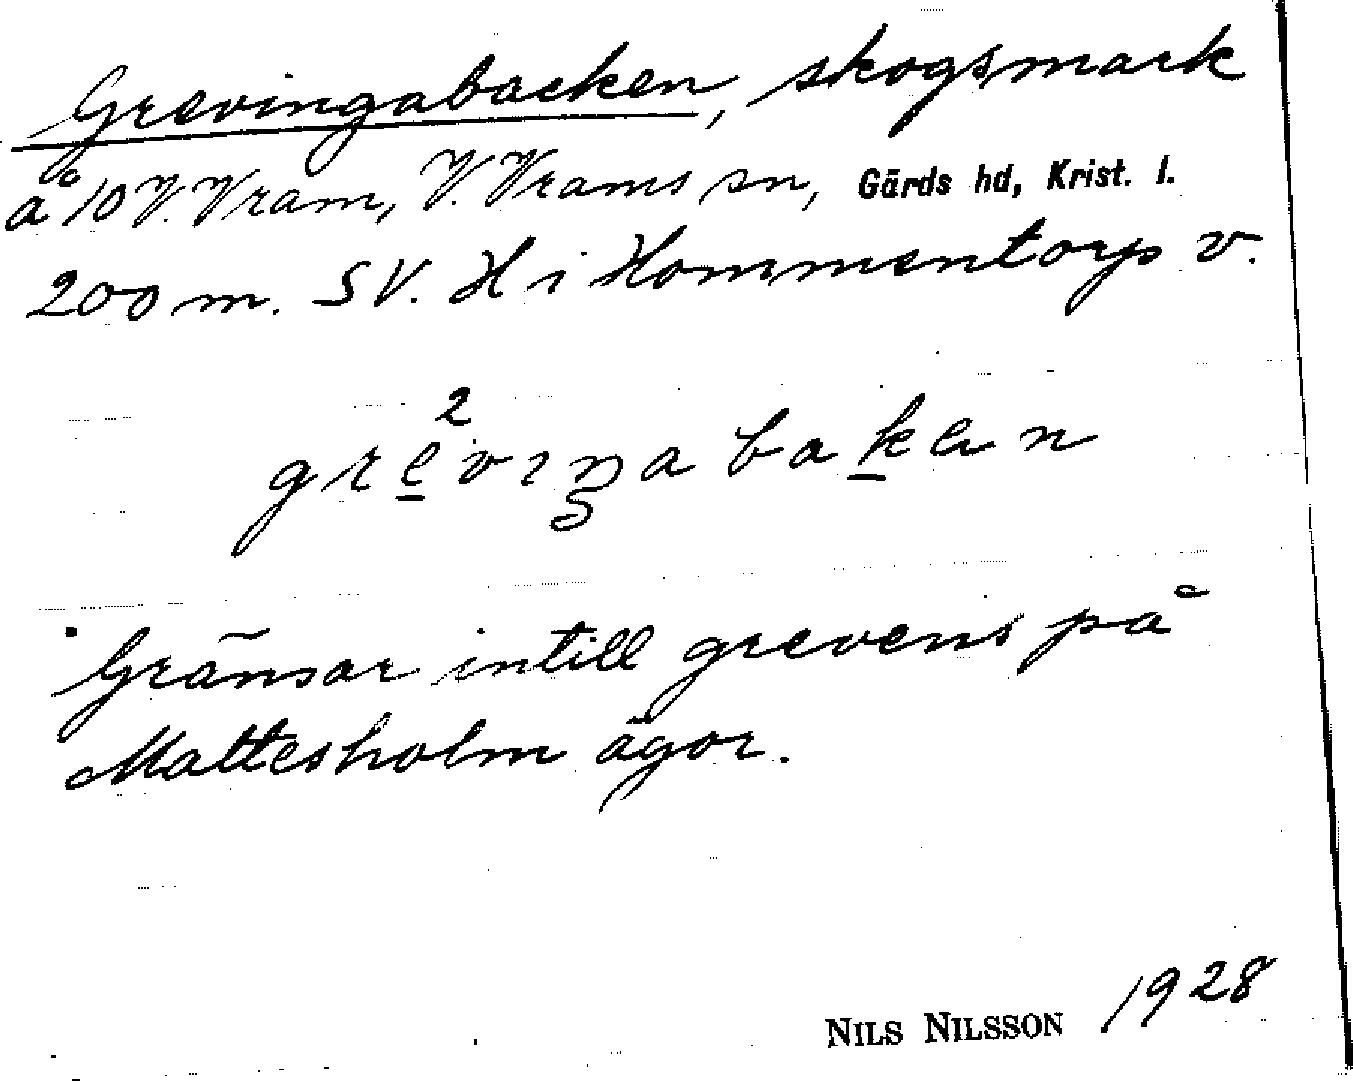 Grevingabacken, skogsmark
å 10 V. Vram, V. Vrams sn, Gärds hd, Krist. l.
200 m. SV. H i Hommentorp v.
2
grevıŋabakan
Gränsar intill grevens på
Mattesholm ägor.
NILS NILSSON 1928